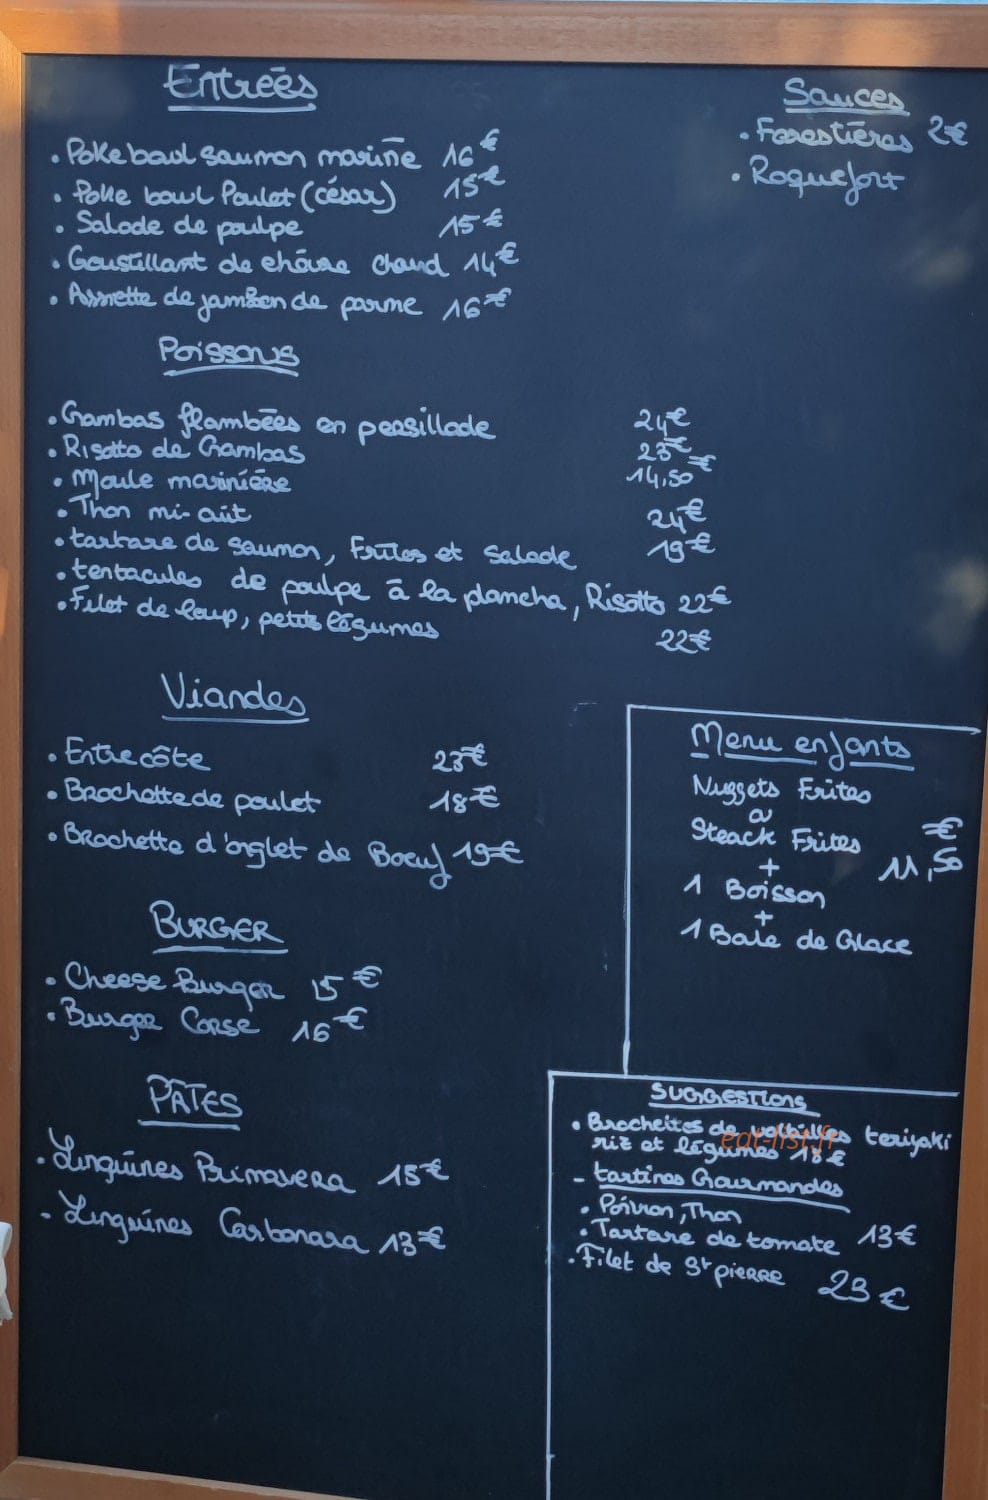 Entrées
. Poke bowl saumon mariné 16€
. Poke bowl Poulet (césar) 15€
. Salade de poulpe 15€
. Coustillant de chèvre chaud 14€
. Assiette de jambon de parme 16€
Poissons
. Gambas flambées en persillade 24€
. Risotto de Gambas 23€
. Moule marinière 14,50€
. Thon mi-cuit 24€
. tartare de saumon, Frites et Salade 19€
. tentacules de poulpe à la plancha, Risotto 22€
. Filet de loup, petits légumes 22€
Viandes
. Entrecôte 23€
. Brochette de poulet 18€
. Brochette d'onglet de Boeuf 19€
BURGER
. Cheese Burger 15€
. Burger Corse 16€
PÂTES
. Linguines Primavera 15€
- Linguines Carbonara 13€
Sauces
. Forestières 2€
. Roquefort
Menu enfants
Nuggets Frites
ou
Steack Frites
€
11,50
+
1 Boisson
+
1 Bale de Glace
SUGGESTIONS
. Brochettes de volailles teriyaki
riz et légumes 18€
eat-list.fr
- tartines Gourmandes
. Poivron, Thon
. Tartare de tomate 13€
. Filet de St pierre 23€